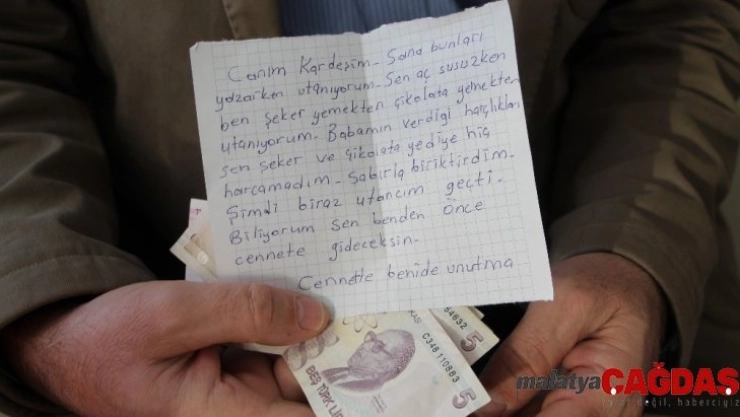 Canım Kardeşim. Sana bunları
yazarken utanıyorum. Sen aç susuzken
ben şeker yemekten çikolata yemekten
utanıyorum. Babamın verdiği harçlıkları
sen şeker ve çikolata yediye hiç
harcamadım. Sabırla biriktirdim.
Şimdi biraz utancım geçti.
Biliyorum sen benden Önce
cennete gideceksin.
Cennette benide unutma
C346110883
5
BEŞ TÜRK LİR
5
malatyaÇAĞDAŞ
değil, haberciyiz